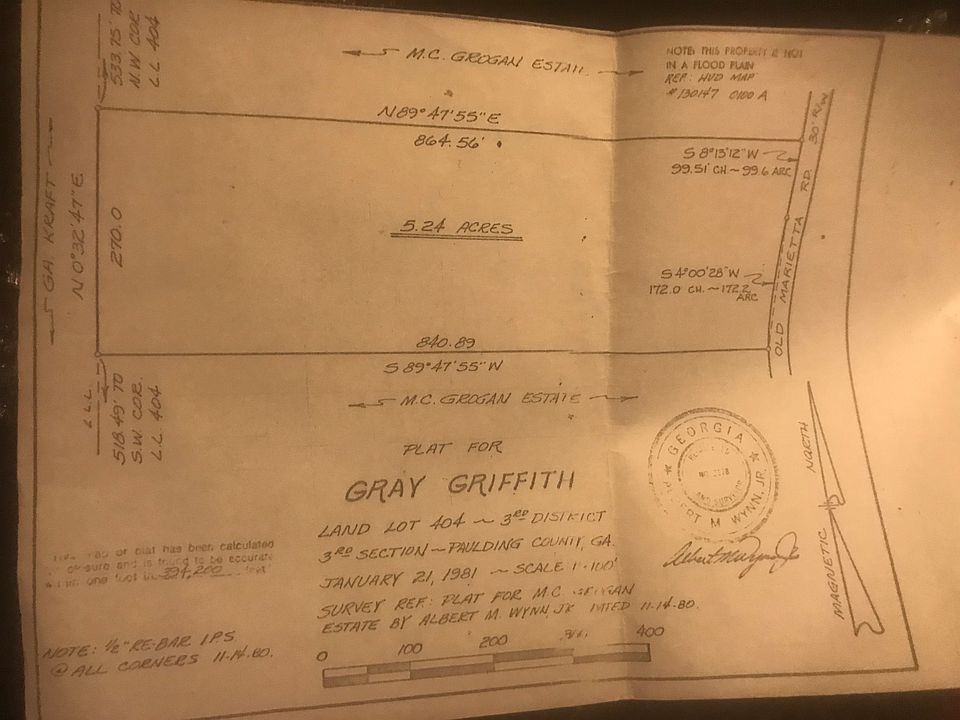 533.75' TO
N.W COR.
L L 404
M.C. GROGAN ESTATE
NOTE: THIS PROPERTY IS NOT
IN A FLOOD PLAIN
REF: HUD MAP
# 130147 0100 A
N 89° 47' 55" E
864.56'
30' R/W
S 8°13'12" W
99.51' CH ~ 99.6 ARC
GA KRAFT
N 0°32'47" E
270.0
5.24 ACRES
S 4°00'28" W
172.0 CH. ~ 172.2
ARC
OLD MARIETTA RD.
840.89
S 89°47'55" W
L.L.L.
518.49' TO
S.W. COR.
L.L. 404
M.C. GROGAN ESTATE
PLAT FOR
GRAY GRIFFITH
LAND LOT 404 ~ 3RD DISTRICT
3RD SECTION ~ PAULDING COUNTY, GA.
JANUARY 21, 1981 ~ SCALE 1"=100'
SURVEY REF: PLAT FOR M.C. GROGAN
ESTATE BY ALBERT M. WYNN, JR DATED 11-14-80.
GEORGIA
AND SURVEYOR
ALBERT M. WYNN, JR.
Albert M Wynn Jr
NORTH
MAGNETIC
or plat has been calculated
closure and is found to be accurate
one foot in 394,200 feet
NOTE: 1/2" RE-BAR I.P.S.
@ ALL CORNERS 11-14-80.
0 100 200 400